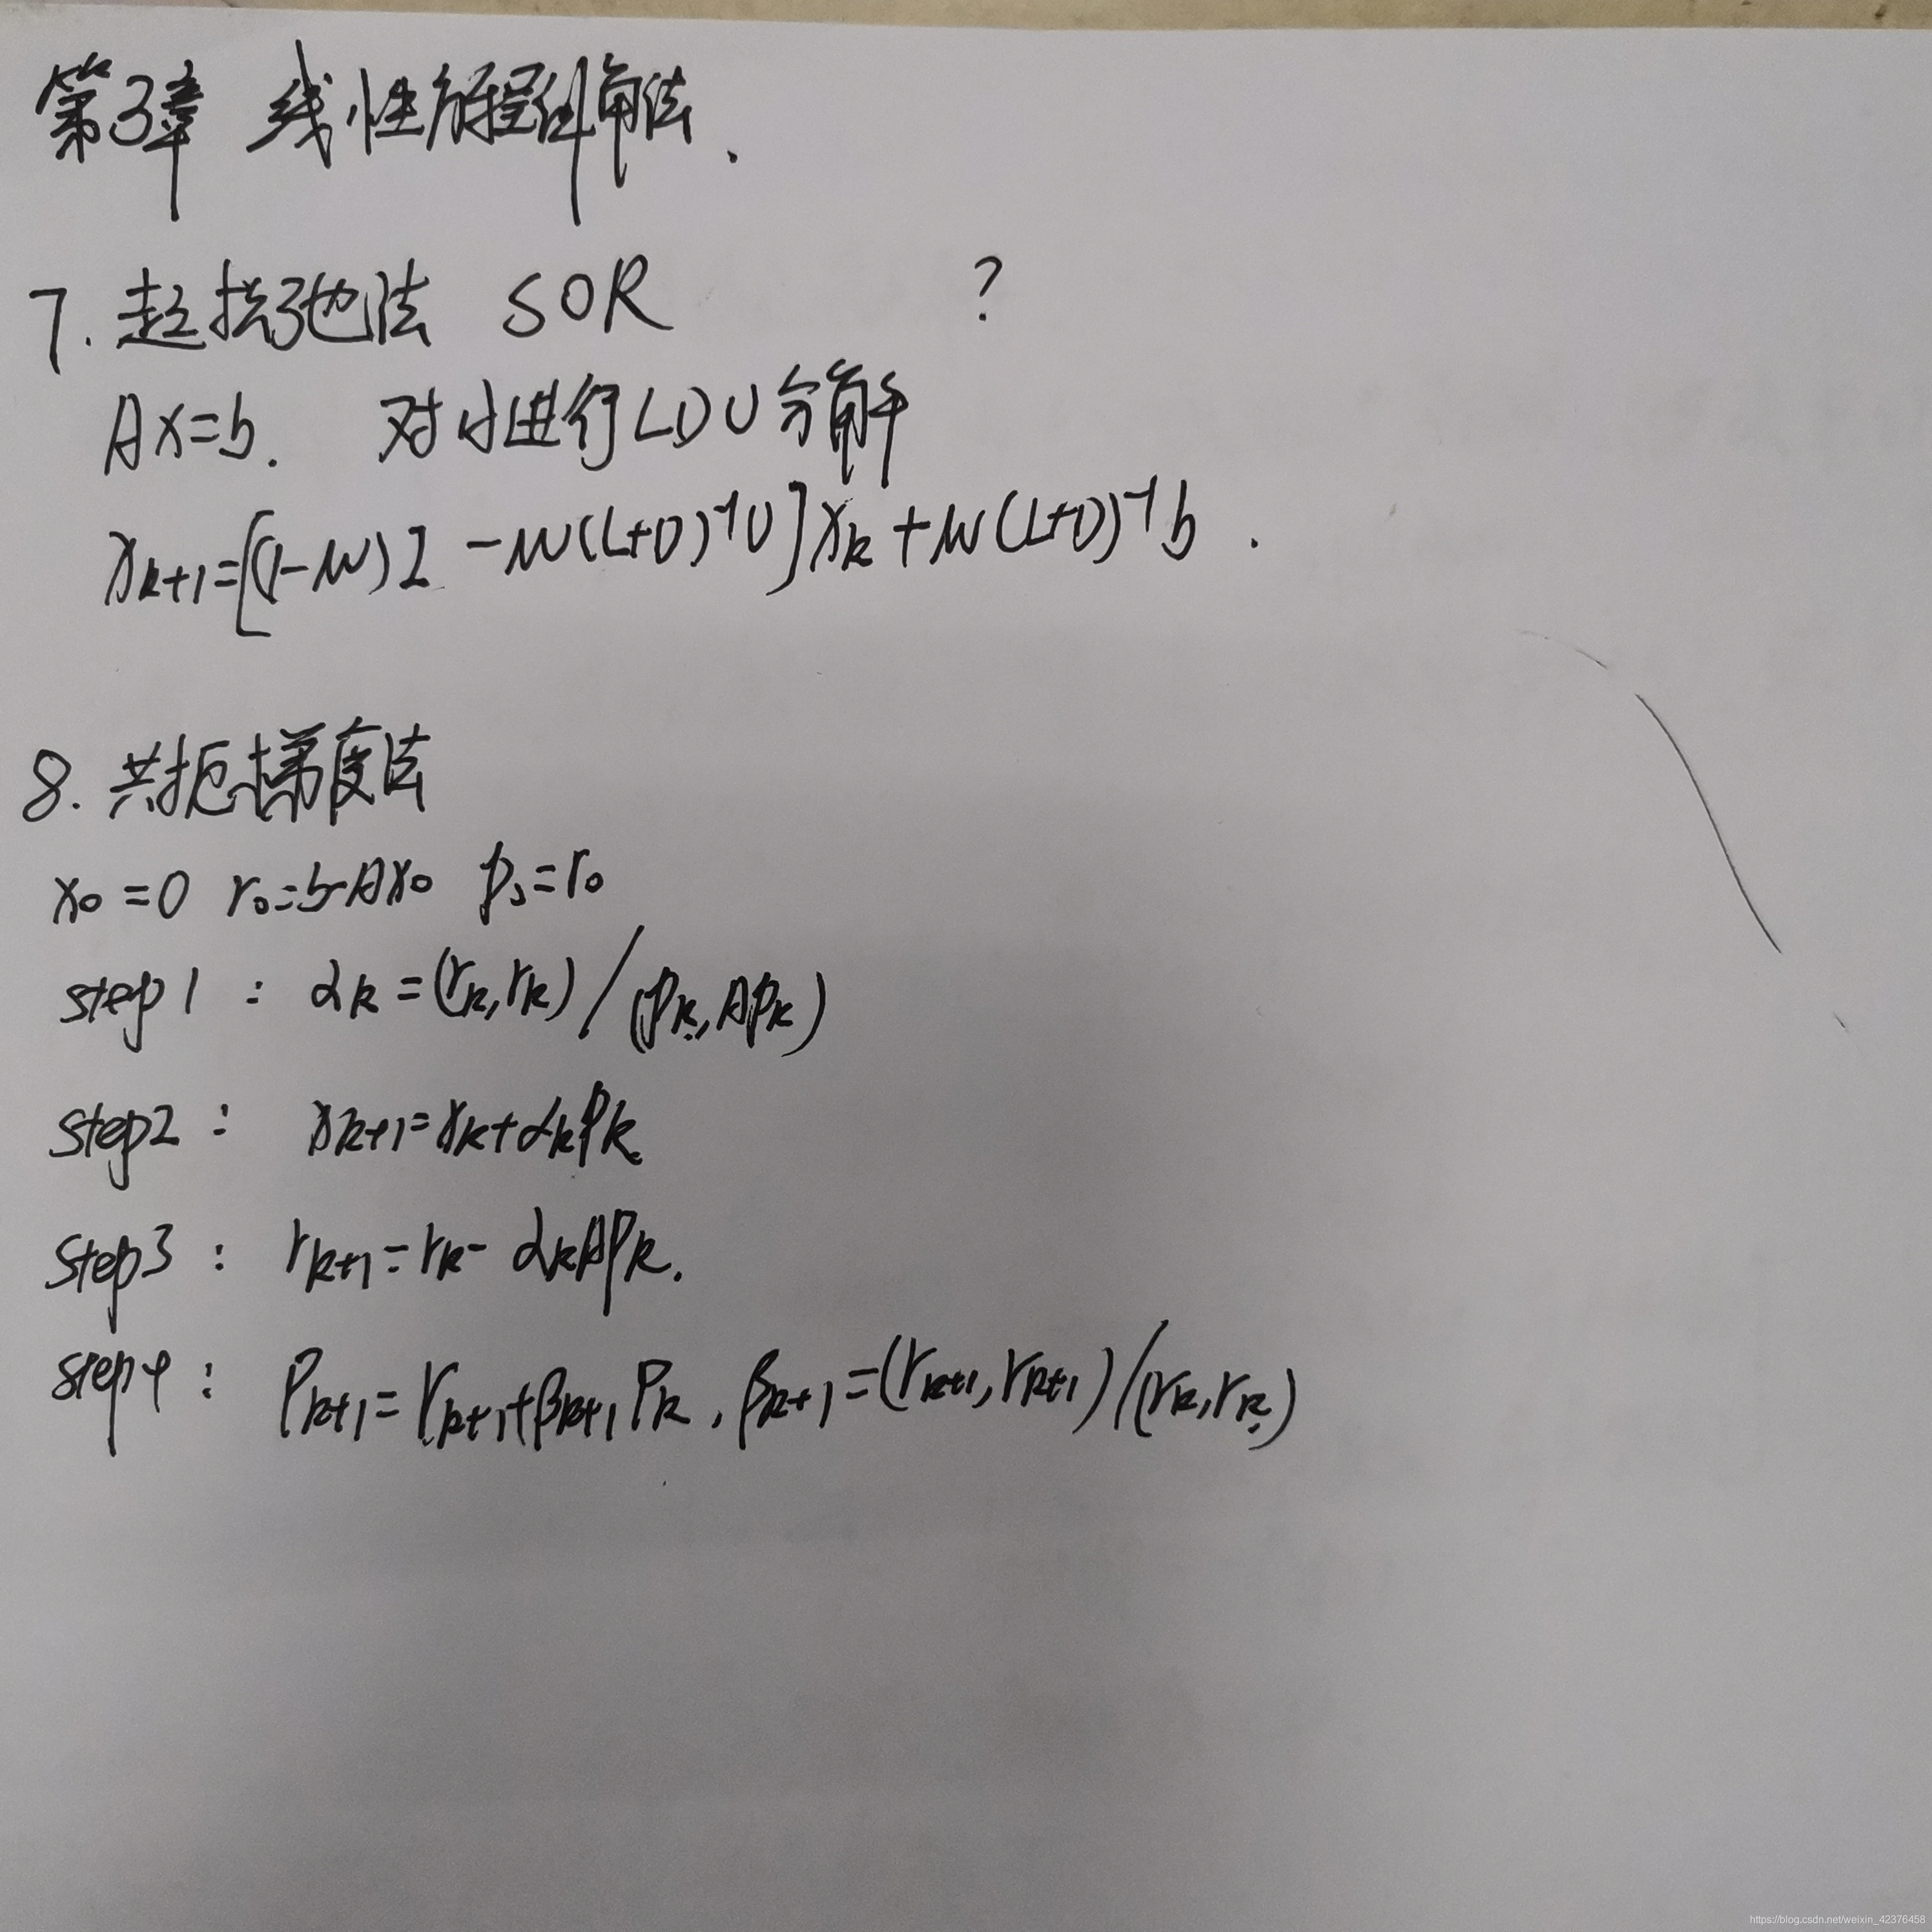 第3章 线性方程组解法.
7. 超松弛法 SOR ?
Ax=b. 对A进行LDU分解
x_{k+1}=[(1-w)I -w(L+D)^{-1}U]x_k+w(L+D)^{-1}b .
8. 共扼梯度法
x_0=0 r_0=b-Ax_0 p_0=r_0
step1 : α_k=(r_k,r_k)/(p_k,Ap_k)
step2 : x_{k+1}=x_k+α_kp_k
step3 : r_{k+1}=r_k-α_kAp_k.
step4 : p_{k+1}=r_{k+1}+β_{k+1}p_k,β_{k+1}=(r_{k+1},r_{k+1})/(r_k,r_k)
https://blog.csdn.net/weixin_42376458